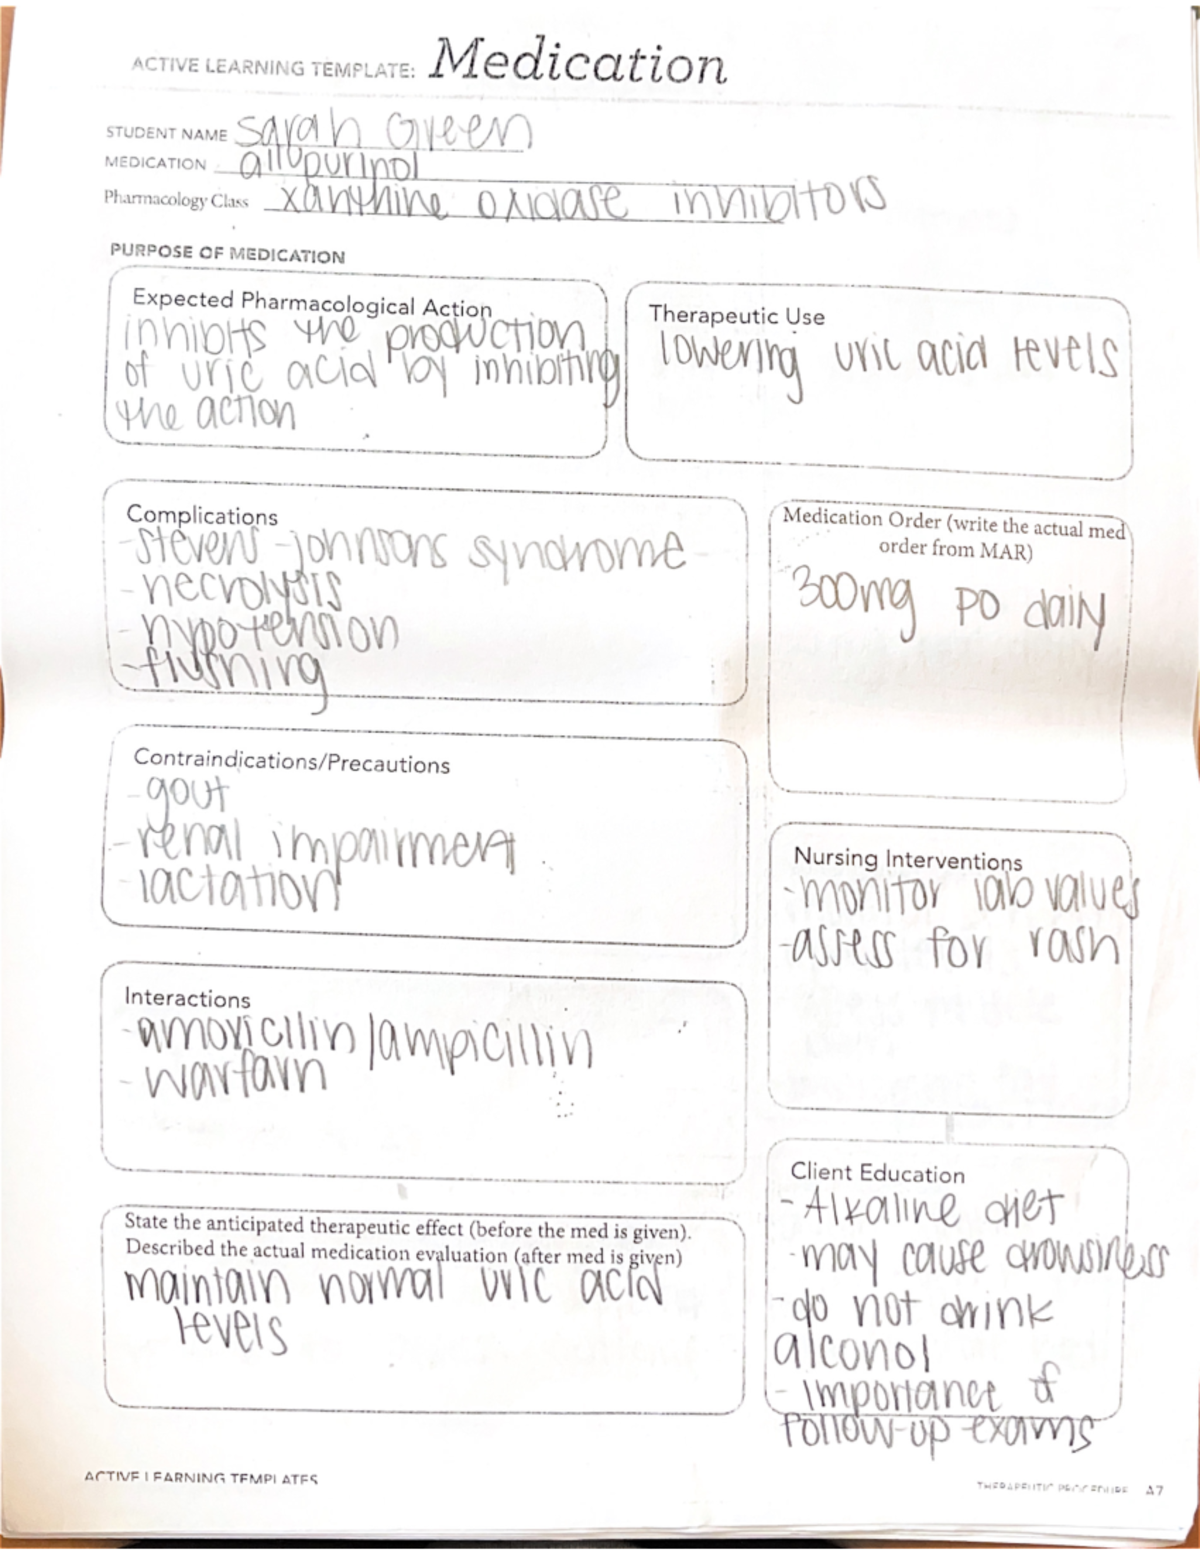 ACTIVE LEARNING TEMPLATE: Medication
STUDENT NAME Sarah Green
MEDICATION allopurinol
Pharmacology Class xanthine oxidase inhibitors
PURPOSE OF MEDICATION
Expected Pharmacological Action
inhibits the production
of uric acid by inhibiting
the action
Therapeutic Use
lowering uric acid levels
Complications
-stevens-johnsons syndrome
-necrolysis
-hypotension
-flushing
Medication Order (write the actual med
order from MAR)
300mg PO daily
Contraindications/Precautions
-gout
-renal impairment
-lactation
Nursing Interventions
-monitor lab values
-assess for rash
Interactions
-amoxicillin/ampicillin
-warfarin
Client Education
-Alkaline diet
-may cause drowsiness
-do not drink
alcohol
-importance of
follow-up exams
State the anticipated therapeutic effect (before the med is given).
Described the actual medication evaluation (after med is given)
maintain normal uric acid
levels
ACTIVE LEARNING TEMPLATES
THERAPEUTIC PROCEDURE A7